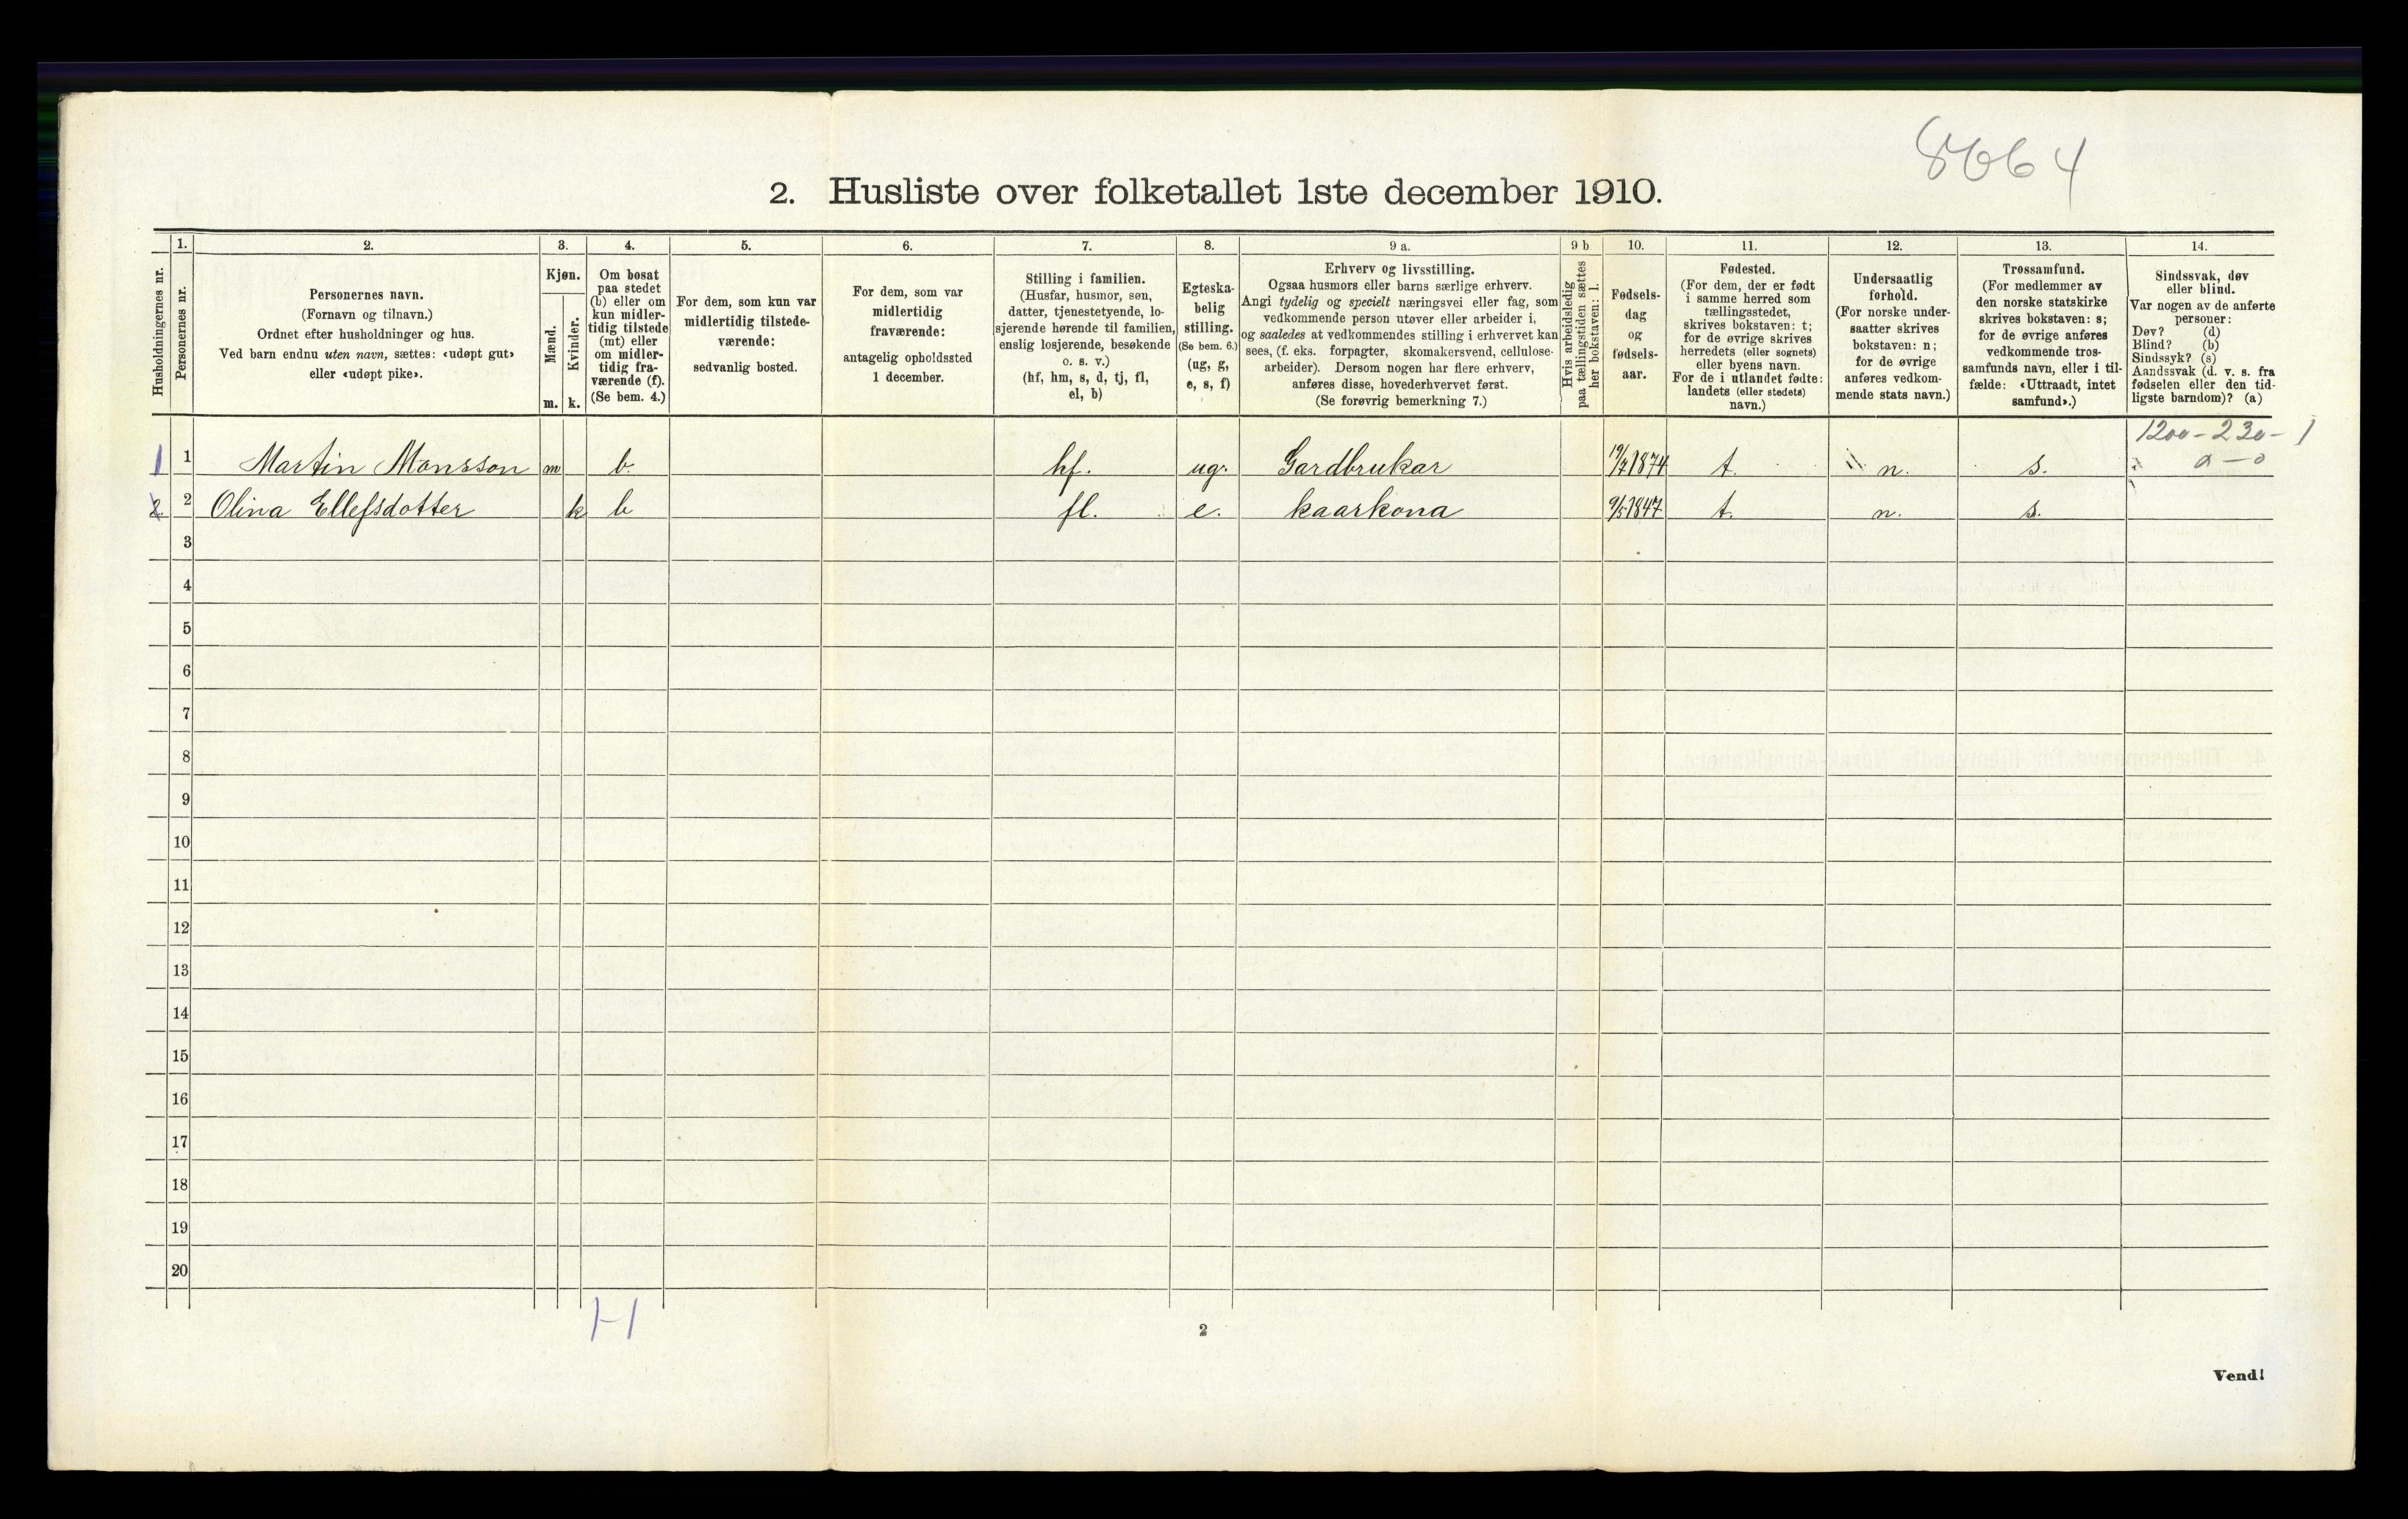 8064
2. Husliste over folketallet 1ste december 1910.
Husholdningernes nr.
1.
Personernes nr.
2.
Personernes navn.
(Fornavn og tilnavn.)
Ordnet efter husholdninger og hus.
Ved barn endnu uten navn, sættes: «udøpt gut»
eller «udøpt pike».
3.
Kjøn.
Mænd.
Kvinder.
m. k.
4.
Om bosat
paa stedet
(b) eller om
kun midler-
tidig tilstede
(mt) eller
om midler-
tidig fra-
værende (f).
(Se bem. 4.)
5.
For dem, som kun var
midlertidig tilstede-
værende:
sedvanlig bosted.
6.
For dem, som var
midlertidig
fraværende:
antagelig opholdssted
1 december.
7.
Stilling i familien.
(Husfar, husmor, søn,
datter, tjenestetyende, lo-
sjerende hørende til familien,
enslig losjerende, besøkende
o. s. v.)
(hf, hm, s, d, tj, fl,
el, b)
8.
Egteska-
belig
stilling.
(Se bem. 6.)
(ug, g,
e, s, f)
9 a.
Erhverv og livsstilling.
Ogsaa husmors eller barns særlige erhverv.
Angi tydelig og specielt næringsvei eller fag, som
vedkommende person utøver eller arbeider i,
og saaledes at vedkommendes stilling i erhvervet kan
sees, (f. eks. forpagter, skomakersvend, cellulose-
arbeider). Dersom nogen har flere erhverv,
anføres disse, hovederhvervet først.
(Se forøvrig bemerkning 7.)
9 b
Hvis arbeidsledig
paa tællingstiden sættes
her bokstaven: l.
10.
Fødsels-
dag
og
fødsels-
aar.
11.
Fødested.
(For dem, der er født
i samme herred som
tællingsstedet,
skrives bokstaven: t;
for de øvrige skrives
herredets (eller sognets)
eller byens navn.
For de i utlandet fødte:
landets (eller stedets)
navn.)
12.
Undersaatlig
forhold.
(For norske under-
saatter skrives
bokstaven: n;
for de øvrige
anføres vedkom-
mende stats navn.)
13.
Trossamfund.
(For medlemmer av
den norske statskirke
skrives bokstaven: s;
for de øvrige anføres
vedkommende tros-
samfunds navn, eller i til-
fælde: «Uttraadt, intet
samfund».)
14.
Sindssvak, døv
eller blind.
Var nogen av de anførte
personer:
Døv? (d)
Blind? (b)
Sindssyk? (s)
Aandssvak (d. v. s. fra
fødselen eller den tid-
ligste barndom)? (a)
1200-230-1
0-0
1 1 Martin Monsson m b. hf. ug. Gardbrukar 19/7 1874 t. n. s.
2 2 Olina Ellefsdotter k b fl. e. kaarkona 9/5 1847 t. n. s.
3
4
5
6
7
8
9
10
11
12
13
14
15
16
17
18
19
20
1-1
2
Vend!